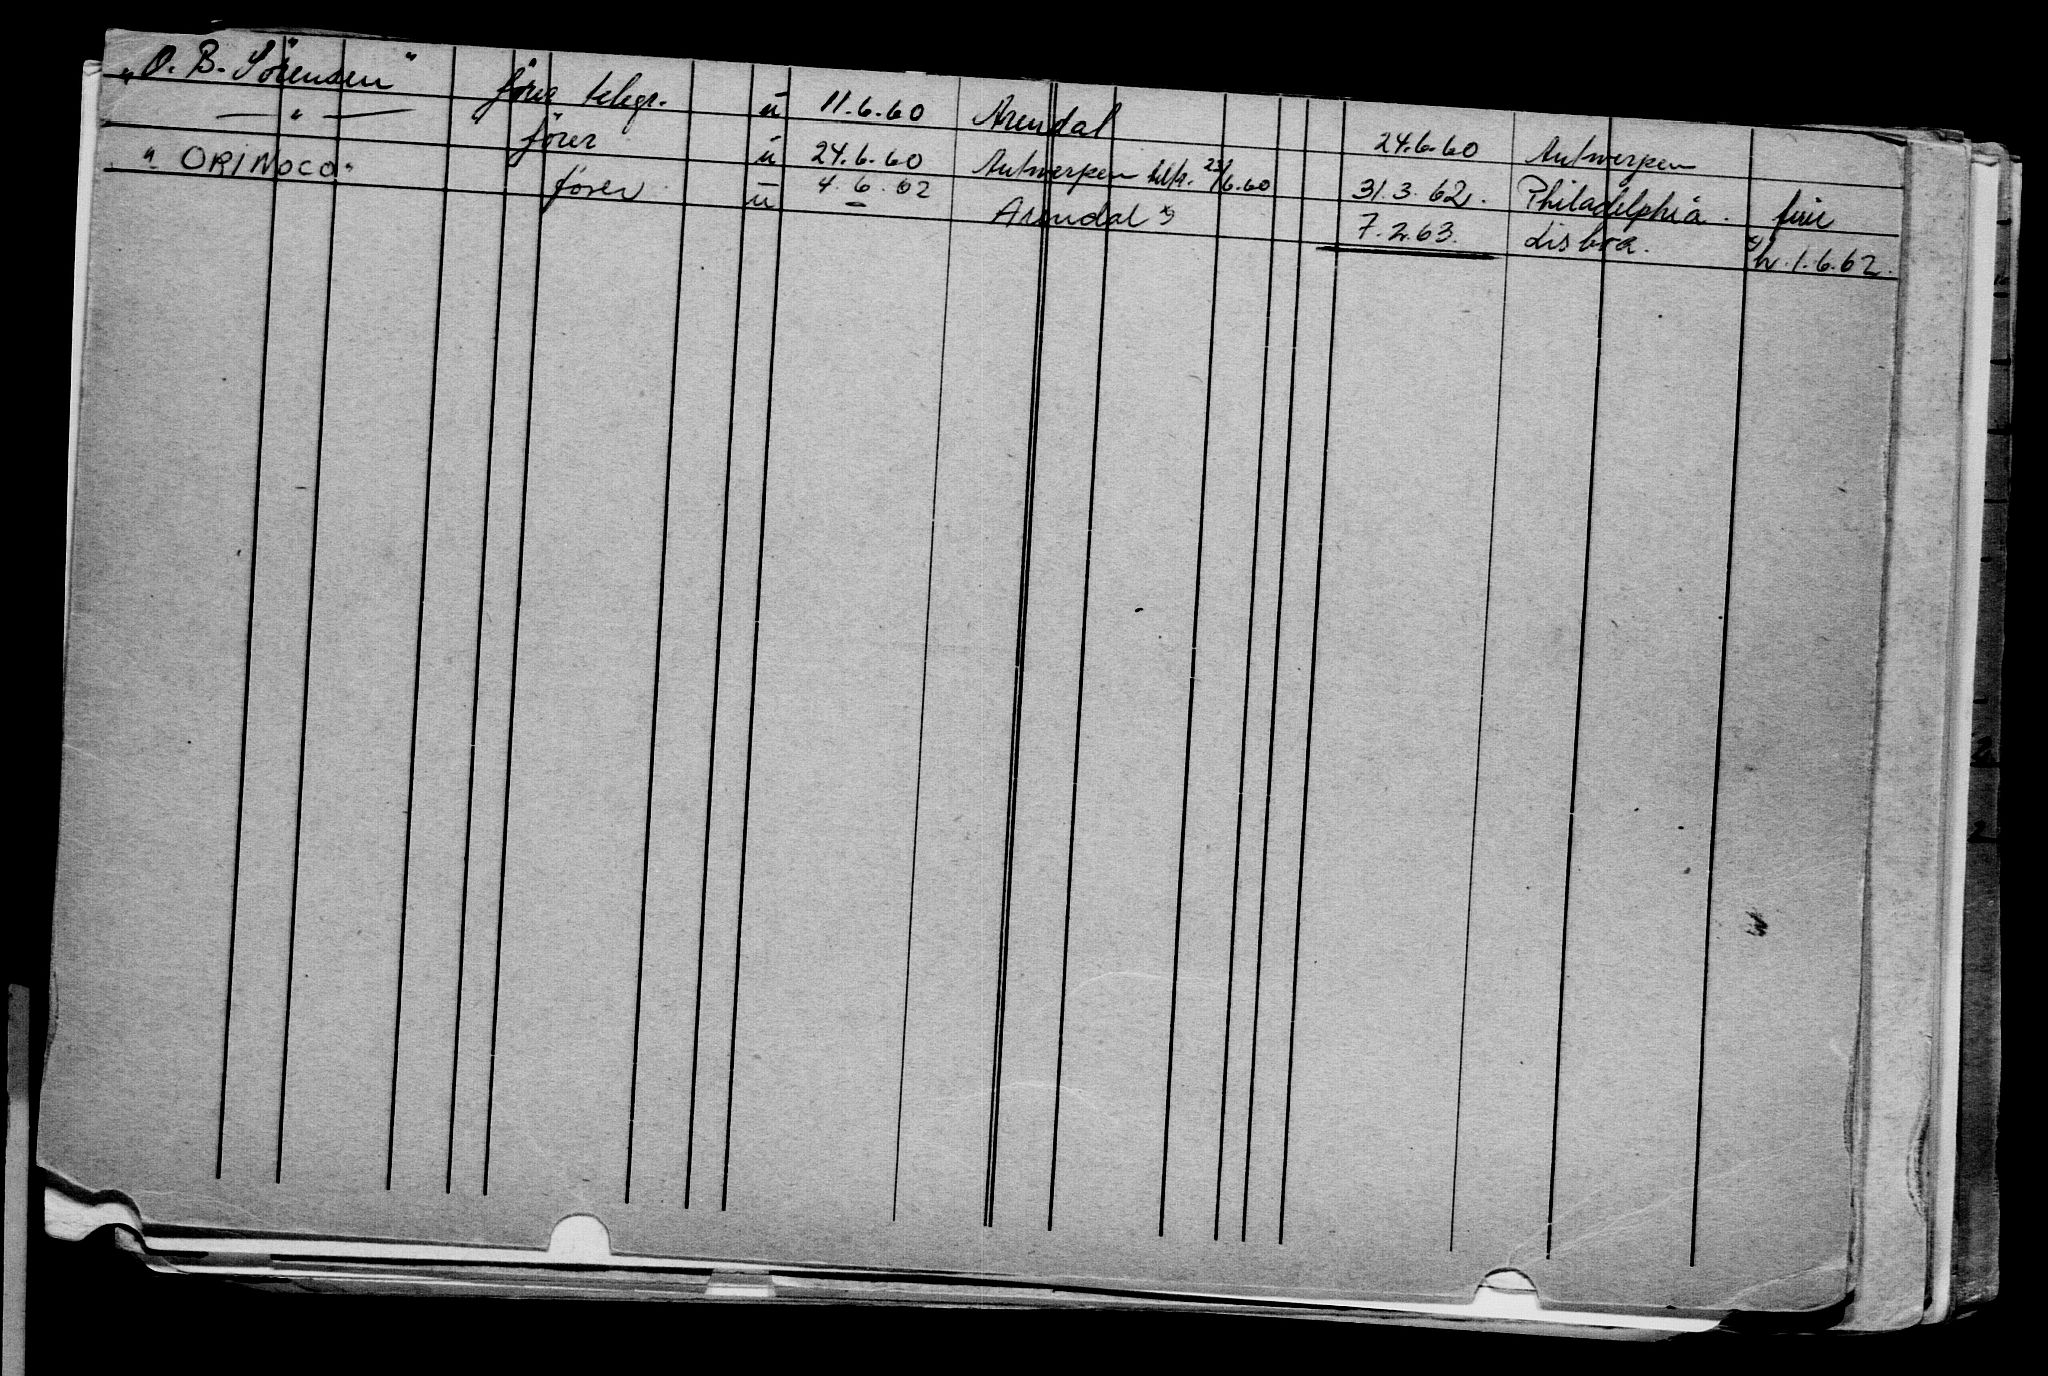 "O. B. Sörensen" förer telegr. u 11.6.60 Arendal 24.6.60 Antwerpen
— " — förer u 24.6.60 Antwerpen telgr. 23/6.60 31.3.62. Philadelphia.
"ORINOCO" förer u 4.6.62 Arendal *) 7.2.63. Lisboa. *) h. 1.6.62.